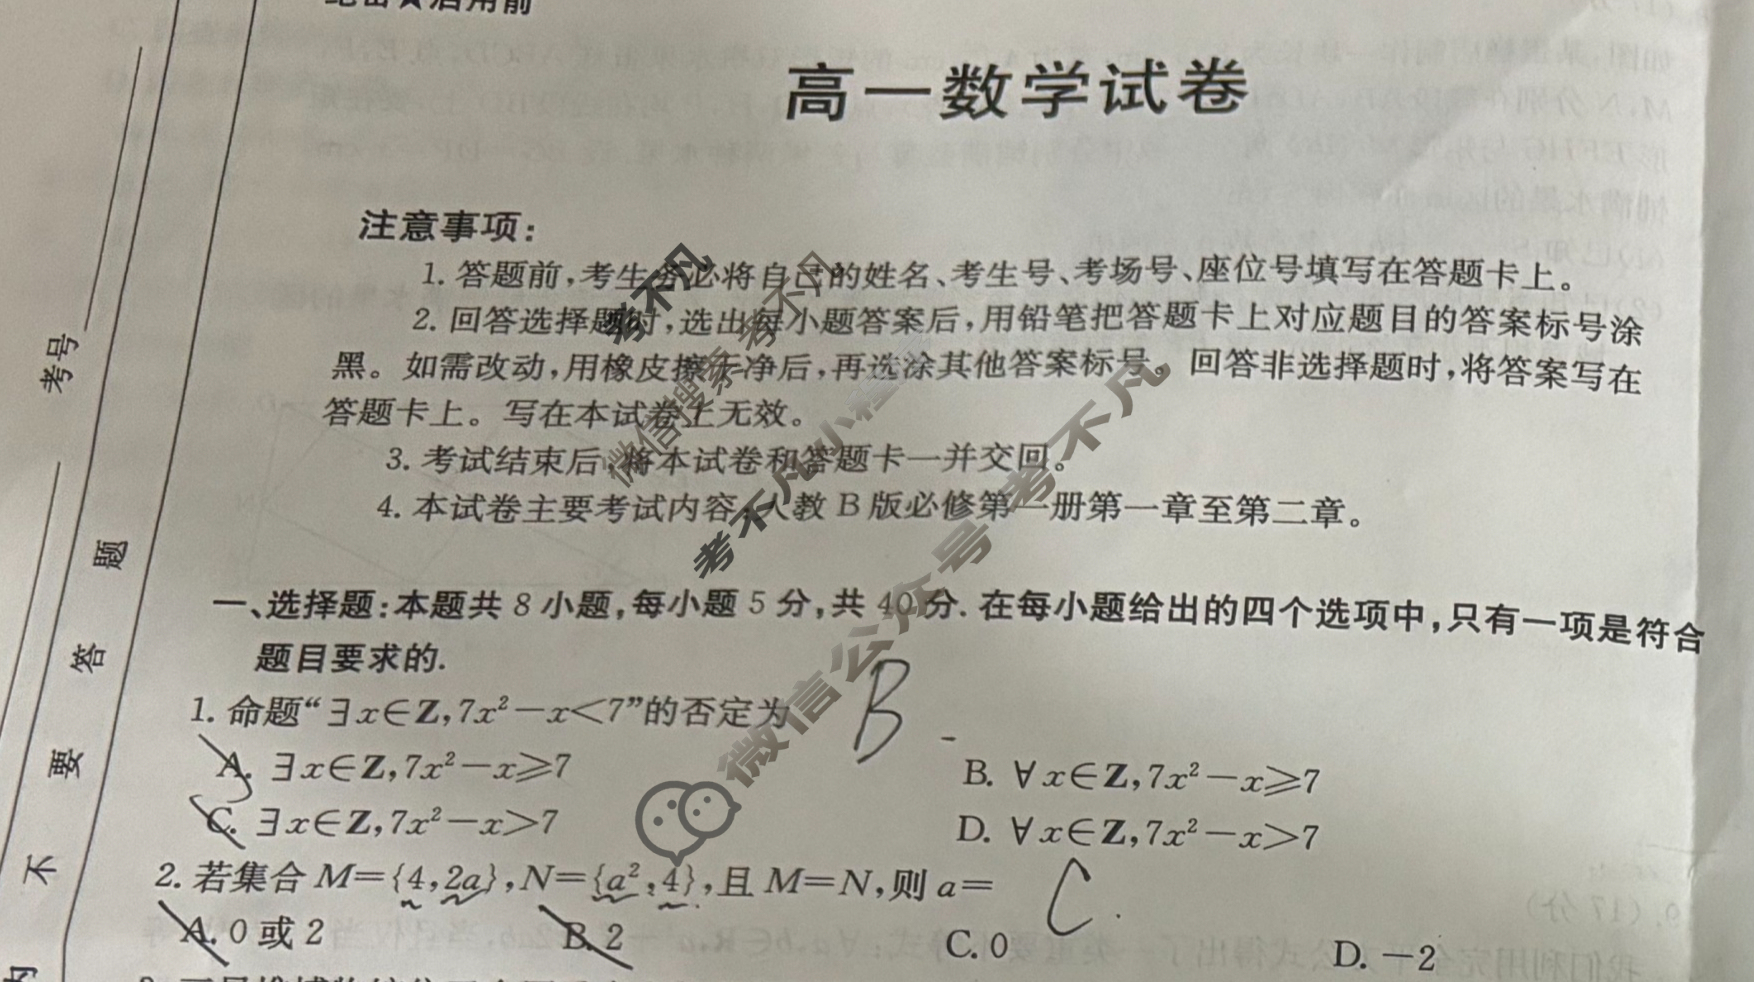 绝密★启用前
高一数学试卷
注意事项：
1. 答题前,考生务必将自己的姓名、考生号、考场号、座位号填写在答题卡上。
2. 回答选择题时,选出每小题答案后,用铅笔把答题卡上对应题目的答案标号涂
黑。如需改动,用橡皮擦干净后,再选涂其他答案标号。回答非选择题时,将答案写在
答题卡上。写在本试卷上无效。
3. 考试结束后,将本试卷和答题卡一并交回。
4. 本试卷主要考试内容:人教 B 版必修第一册第一章至第二章。
一、选择题:本题共 8 小题,每小题 5 分,共 40 分. 在每小题给出的四个选项中,只有一项是符合
题目要求的.
1. 命题“∃x∈Z,7x²-x<7”的否定为 B
A. ∃x∈Z,7x²-x⩾7
B. ∀x∈Z,7x²-x⩾7
C. ∃x∈Z,7x²-x>7
D. ∀x∈Z,7x²-x>7
2. 若集合 M={4,2a},N={a²,4},且 M=N,则 a= C.
A. 0 或 2
B. 2
C. 0
D. -2
考号
题
答
要
不
内
考不凡
微信搜索 考不凡
考不凡小程序
微信公众号 考不凡